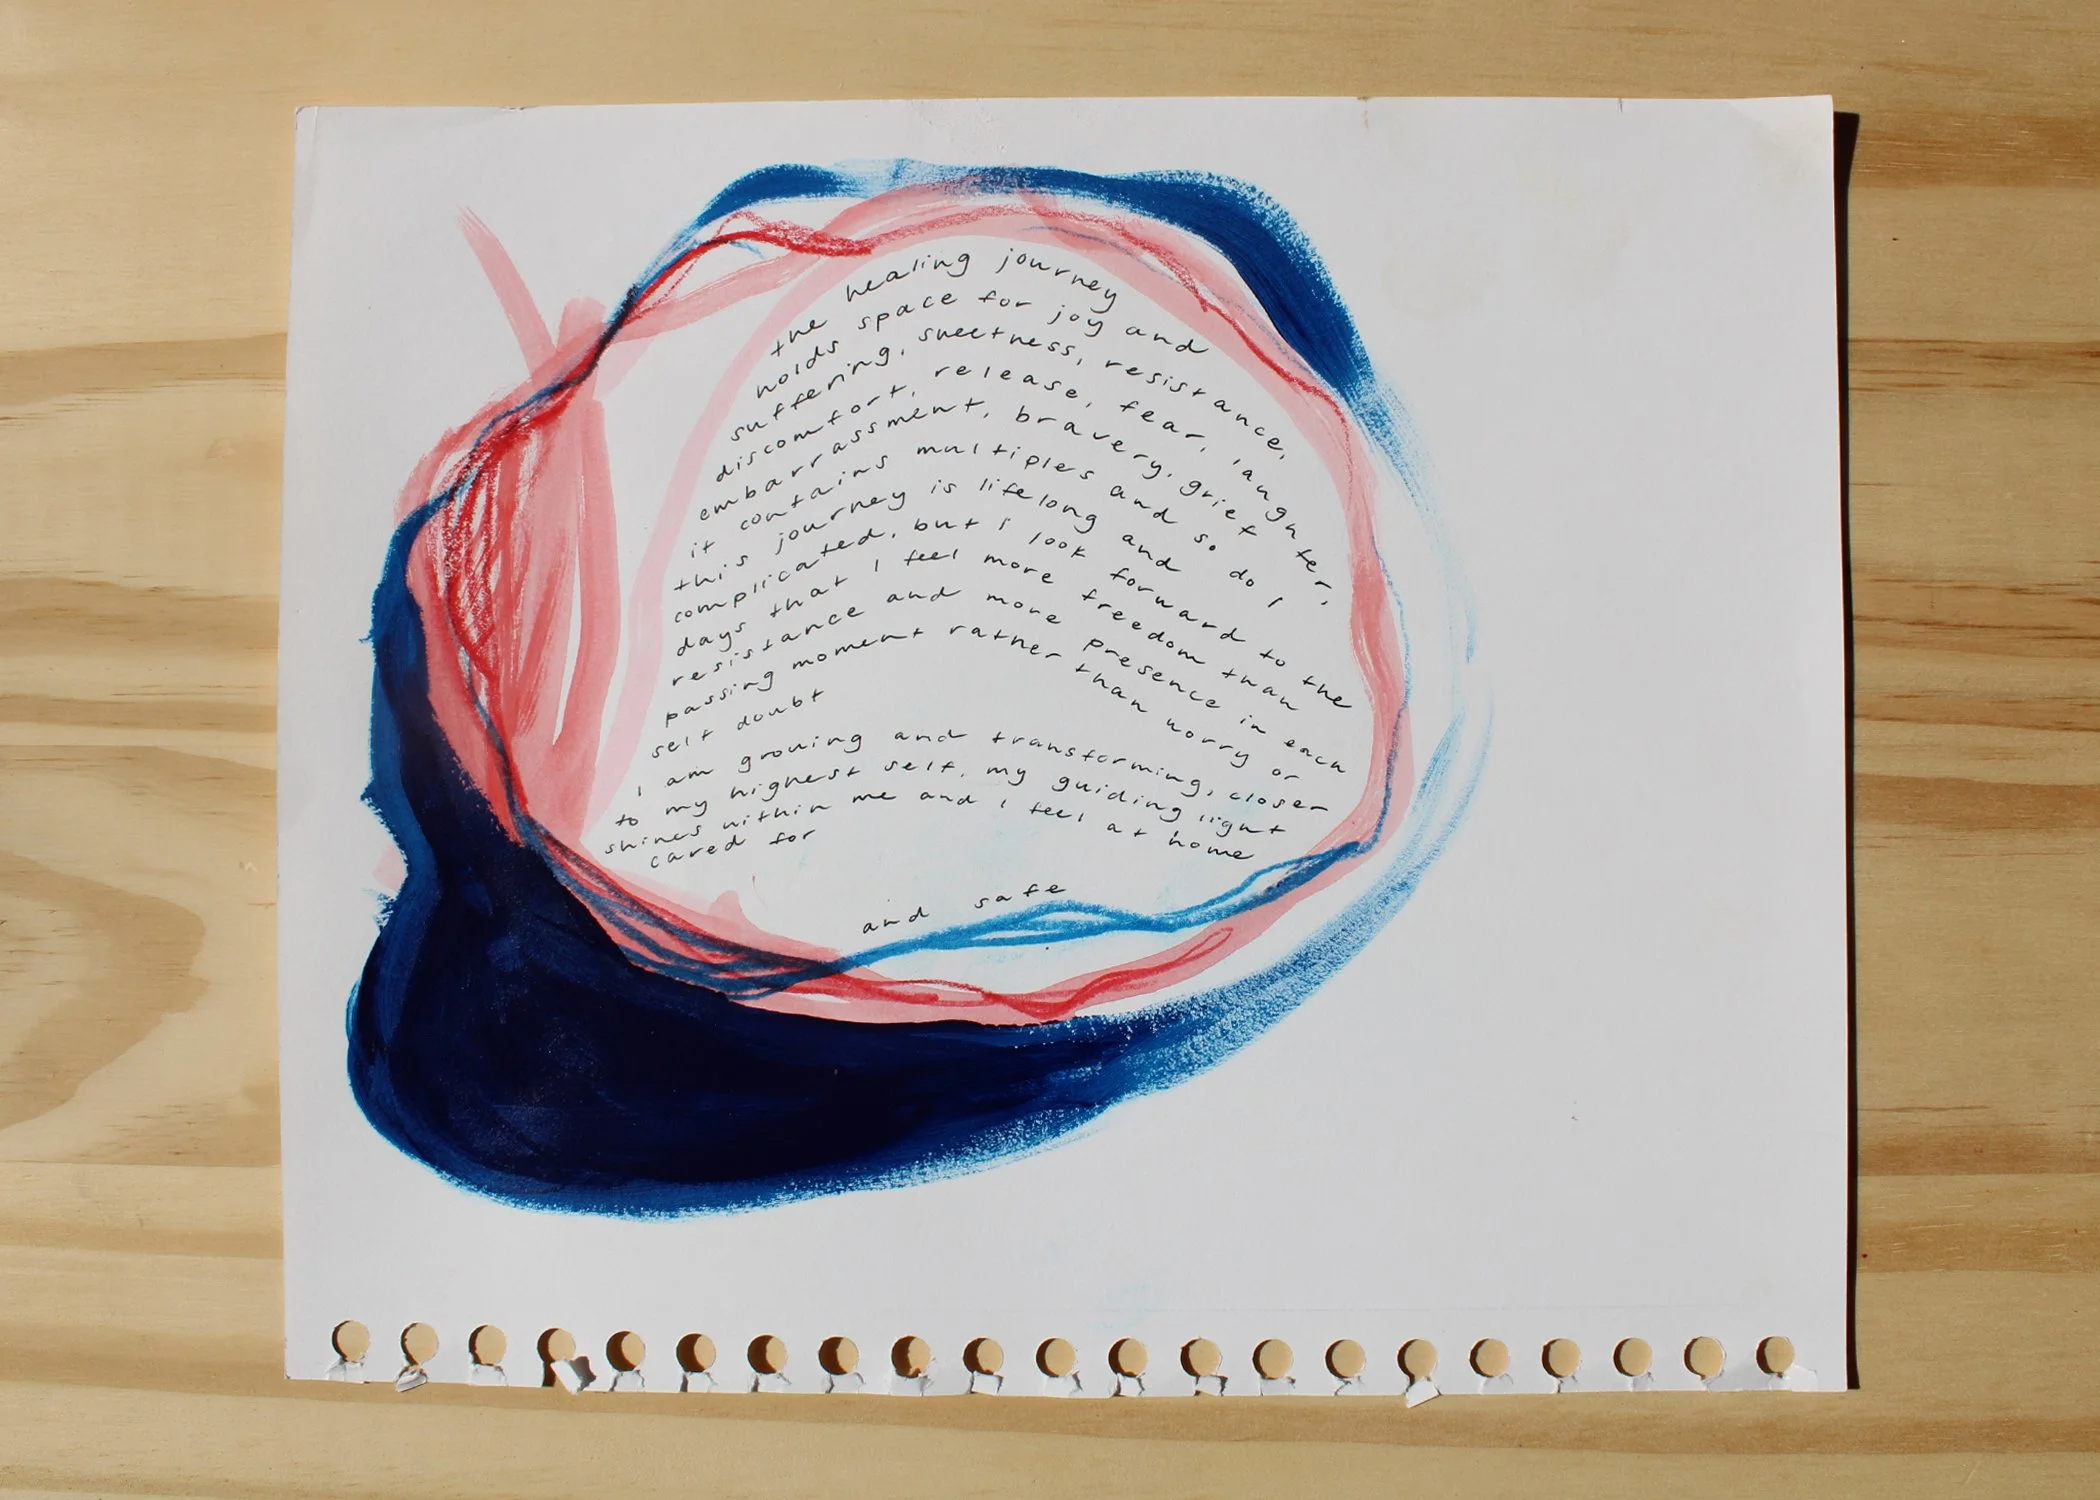 the healing journey
holds space for joy and
suffering, sweetness, resistance,
discomfort, release, fear, laughter,
embarrassment, bravery, grief
it contains multiples and so do I
this journey is lifelong and
complicated, but I look forward to the
days that I feel more freedom than
resistance and more presence in each
passing moment rather than worry or
self doubt
I am growing and transforming, closer
to my highest self, my guiding light
shines within me and I feel at home
cared for
and safe